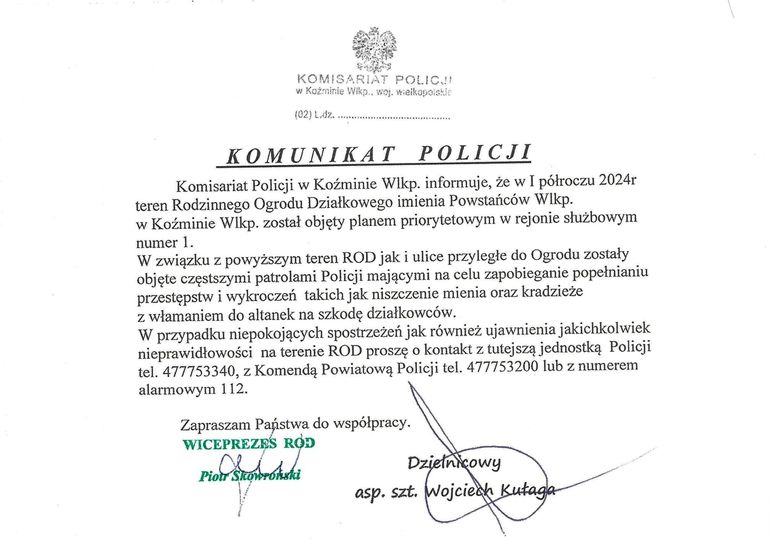 KOMISARIAT POLICJI
w Koźminie Wlkp., woj. wielkopolskie
(02) L.dz. ........................................
KOMUNIKAT POLICJI
Komisariat Policji w Koźminie Wlkp. informuje, że w I półroczu 2024r
teren Rodzinnego Ogrodu Działkowego imienia Powstańców Wlkp.
w Koźminie Wlkp. został objęty planem priorytetowym w rejonie służbowym
numer 1.
W związku z powyższym teren ROD jak i ulice przyległe do Ogrodu zostały
objęte częstszymi patrolami Policji mającymi na celu zapobieganie popełnianiu
przestępstw i wykroczeń takich jak niszczenie mienia oraz kradzieże
z włamaniem do altanek na szkodę działkowców.
W przypadku niepokojących spostrzeżeń jak również ujawnienia jakichkolwiek
nieprawidłowości na terenie ROD proszę o kontakt z tutejszą jednostką Policji
tel. 477753340, z Komendą Powiatową Policji tel. 477753200 lub z numerem
alarmowym 112.
Zapraszam Państwa do współpracy.
WICEPREZES ROD
Piotr Skowroński
Dzielnicowy
asp. szt. Wojciech Kułaga